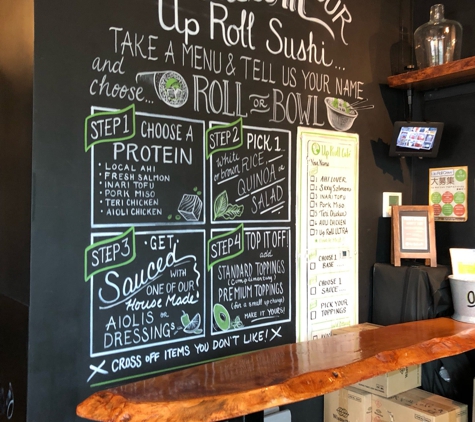 OUR
Up Roll Sushi...
TAKE A MENU & TELL US YOUR NAME
and
choose...
ROLL or BOWL
STEP 1
CHOOSE A
PROTEIN
• LOCAL AHI
• FRESH SALMON
• INARI TOFU
• PORK MISO
• TERI CHICKEN
• AIOLI CHICKEN
STEP 2
PICK 1...
White or brown
RICE,
QUINOA or
SALAD
STEP 3
GET
Sauced
WITH
ONE OF OUR
House Made
AIOLIS or
DRESSINGS
STEP 4
TOP IT OFF!
add
STANDARD TOPPINGS
(Complimentary)
PREMIUM TOPPINGS
(for a small upcharge)
MAKE IT YOURS!
X CROSS OFF ITEMS YOU DON'T LIKE! X
Up Roll Café
Your Name
AHI LOVER
Sexy Salmon
INARI TOFU
PORK Miso
Teri Chicken
AIOLI CHICKEN
Up Roll ULTRA
CHOOSE 1
BASE
CHOOSE 1
SAUCE
PICK YOUR
TOPPINGS
大募集